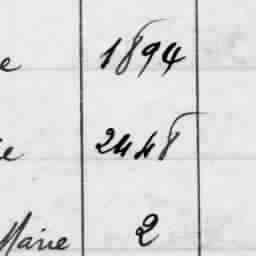 e 1894
ie 2448
Marie 2